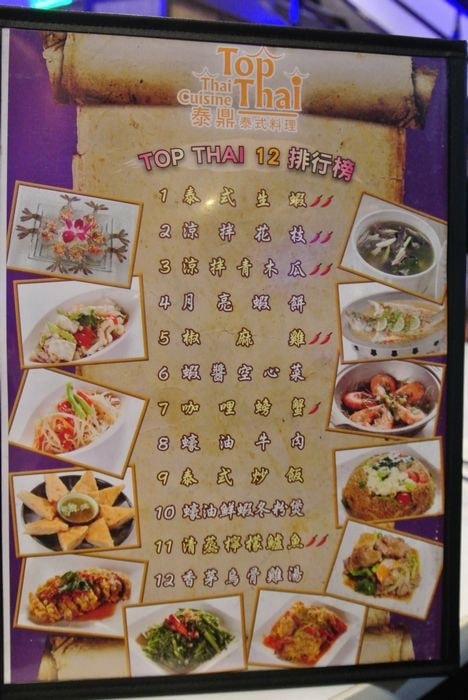 Top
Thai Thai
Cuisine
泰鼎 泰式料理
TOP THAI 12 排行榜
1 泰式生蝦
2 涼拌花枝
3 涼拌青木瓜
4 月亮蝦餅
5 椒麻雞
6 蝦醬空心菜
7 咖哩螃蟹
8 蠔油牛肉
9 泰式炒飯
10 蠔油鮮蝦冬粉煲
11 清蒸檸檬鱸魚
12 香茅烏骨雞湯